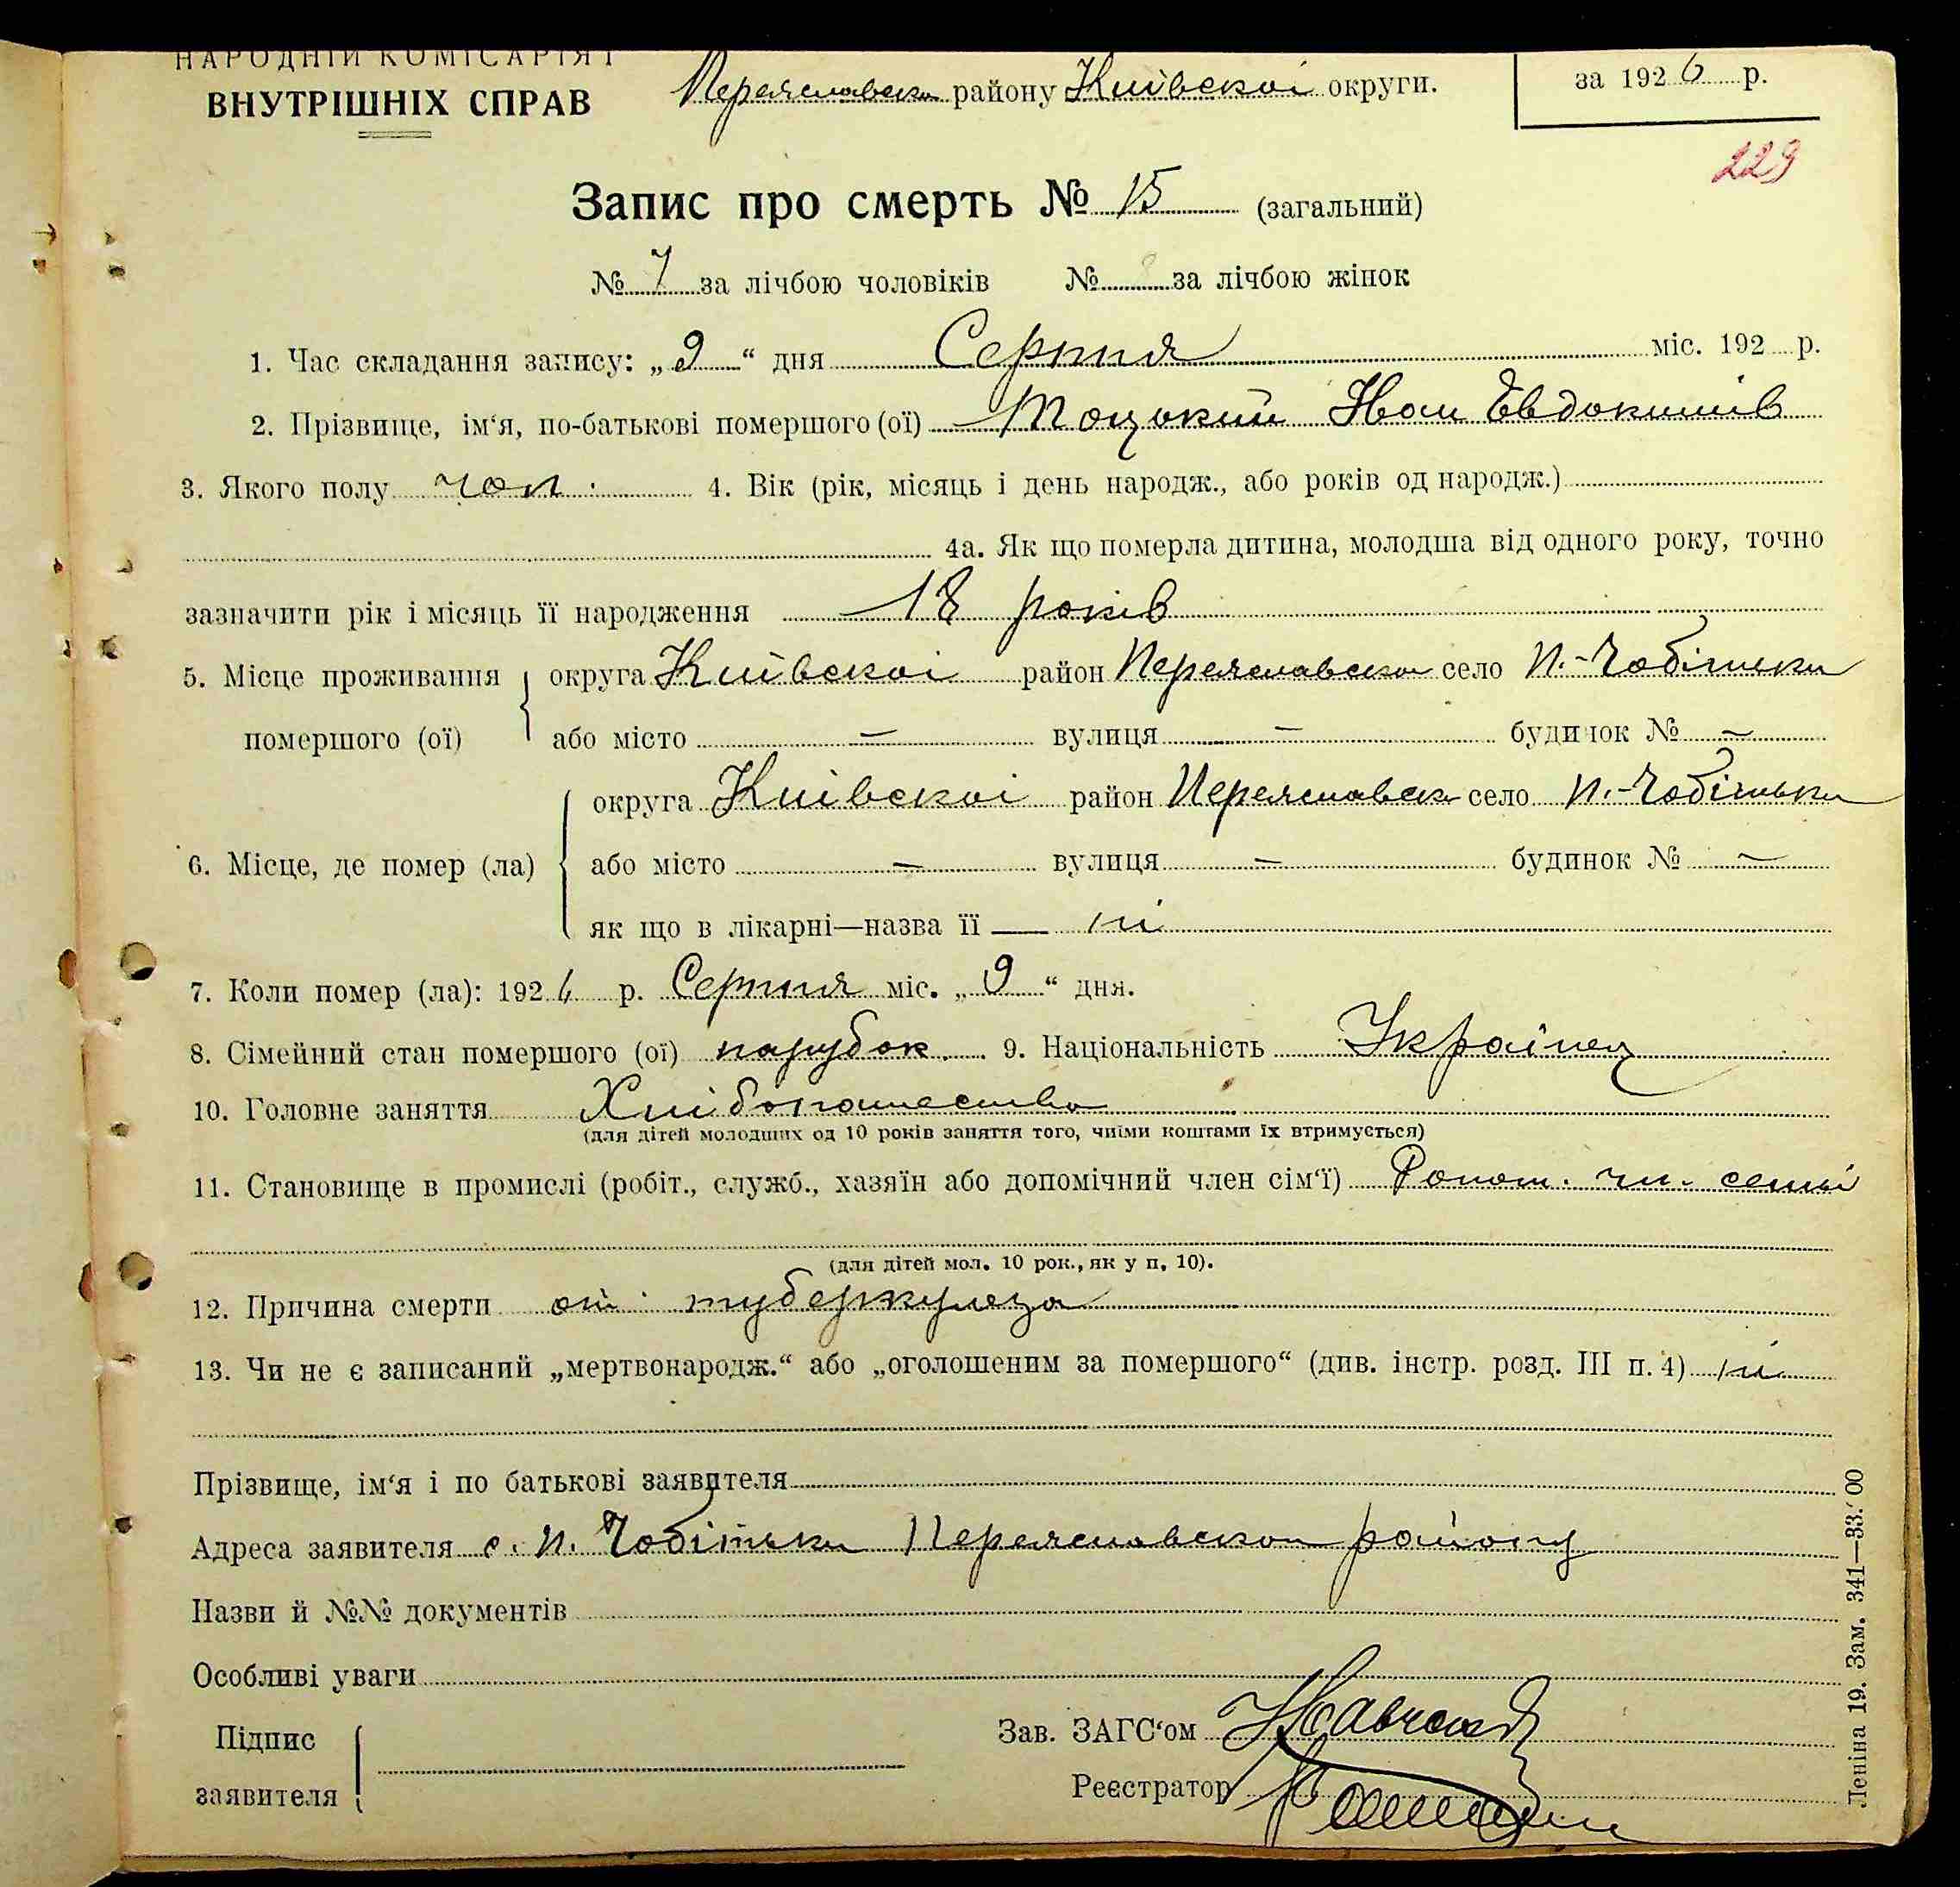 НАРОДНІЙ КОМІСАРІЯТ
ВНУТРІШНІХ СПРАВ
Переяславська району Київскоі округи.
за 1926 р.
229
Запис про смерть № 15 (загальний)
№ 7 за лічбою чоловіків № за лічбою жінок
1. Час складання запису: „ 9 “ дня Серпня міс. 192 р.
2. Прізвище, ім‘я, по-батькові помершого (ої) Тоцький Иван Євдокимів
3. Якого полу чол. 4. Вік (рік, місяць і день народж., або років од народж.)
4а. Як що померла дитина, молодша від одного року, точно
зазначити рік і місяць її народження 18 років
5. Місце проживання помершого (ої) округа Киівскоі район Переяславська село П.-Чобітьки
або місто — вулиця — будинок № —
6. Місце, де помер (ла) округа Киівскоі район Переяславськ село П.-Чобітьки
або місто — вулиця — будинок № —
як що в лікарні—назва її — ні
7. Коли помер (ла): 1926 р. Серпня міс. „ 9 “ дня.
8. Сімейний стан помершого (ої) парубок. 9. Національність Украінец
10. Головне заняття Хлібопашество
(для дітей молодших од 10 років заняття того, чиїми коштами їх втримується)
11. Становище в промислі (робіт., служб., хазяїн або допомічний член сім‘ї) чл. семьі
(для дітей мол. 10 рок., як у п. 10).
12. Причина смерти от туберкульоза
13. Чи не є записаний „мертвонародж.“ або „оголошеним за помершого“ (див. інстр. розд. III п. 4) ні
Прізвище, ім‘я і по батькові заявителя
Адреса заявителя с. П. Чобітьки Переяславскоп району
Назви й №№ документів
Особливі уваги
Підпис заявителя
Зав. ЗАГС‘ом
Реєстратор
Леніна 19. Зам. 341—33.000